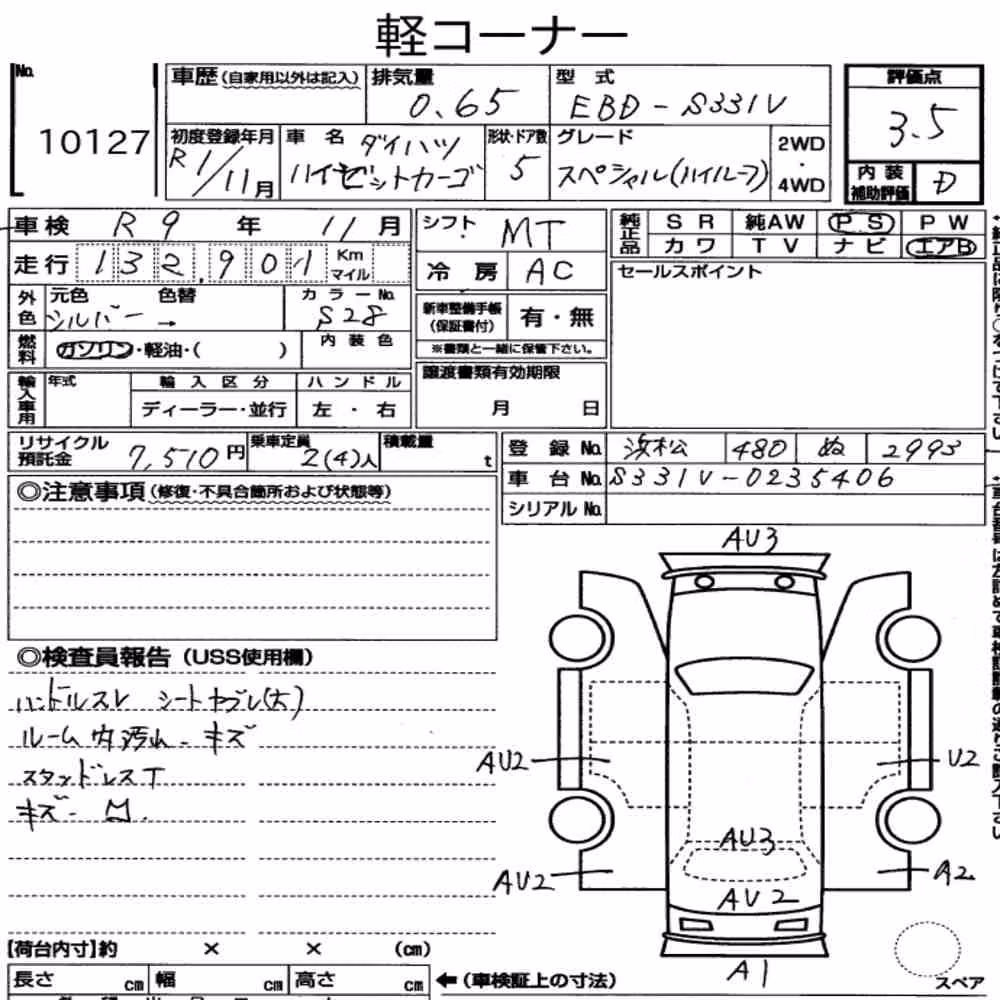 軽コーナー
No. 10127
車歴(自家用以外は記入) 排気量 0.65 型式 EBD-S331V 評価点 3.5
初度登録年月 R1/11月 車名 ダイハツ ハイゼットカーゴ 形状・ドア数 5 グレード スペシャル(ハイルーフ) 2WD・4WD 内装補助評価 D
車検 R9年 11月 シフト MT 純正品 SR 純AW PS PW
走行 132,901 Km マイル 冷房 AC カワ TV ナビ エアB
外色 元色 シルバー 色替 → カラーNo. S28 新車整備手帳(保証書付) 有・無 セールスポイント
燃料 ガソリン・軽油・( ) 内装色 ※書類と一緒に保管下さい。
輸入車用 年式 輸入区分 ハンドル 譲渡書類有効期限
ディーラー・並行 左・右 月 日
リサイクル預託金 7,510円 乗車定員 2(4)人 積載量 t 登録No. 浜松 480 ぬ 2993
車台No. S331V-0235406
◎注意事項(修復・不具合箇所および状態等) シリアルNo.
AU3
◎検査員報告(USS使用欄)
ハンドルスレ シートヤブレ(大)
ルーム内汚れ・キズ
スタッドレスT
キズ・凹.
AU2 U2
AU3
AU2 A2
AU2
A1
スペア
【荷台内寸】約 × × (cm)
長さ cm 幅 cm 高さ cm ←(車検証上の寸法)